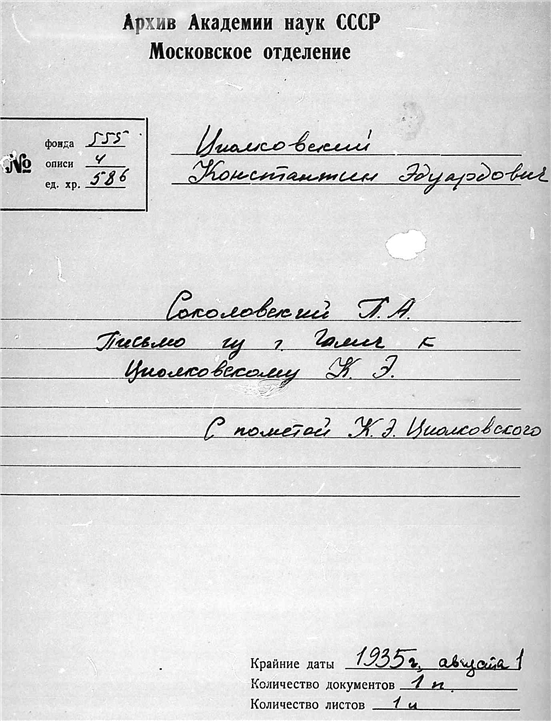 Архив Академии наук СССР
Московское отделение
№
фонда 555
описи 4
ед. хр. 586
Циолковский
Константин Эдуардович
Соколовский П.А.
Письмо из г. Галич к
Циолковскому К. Э.
С пометой К.Э. Циолковского
Крайние даты 1935г, августа 1
Количество документов 1 п.
Количество листов 1 л